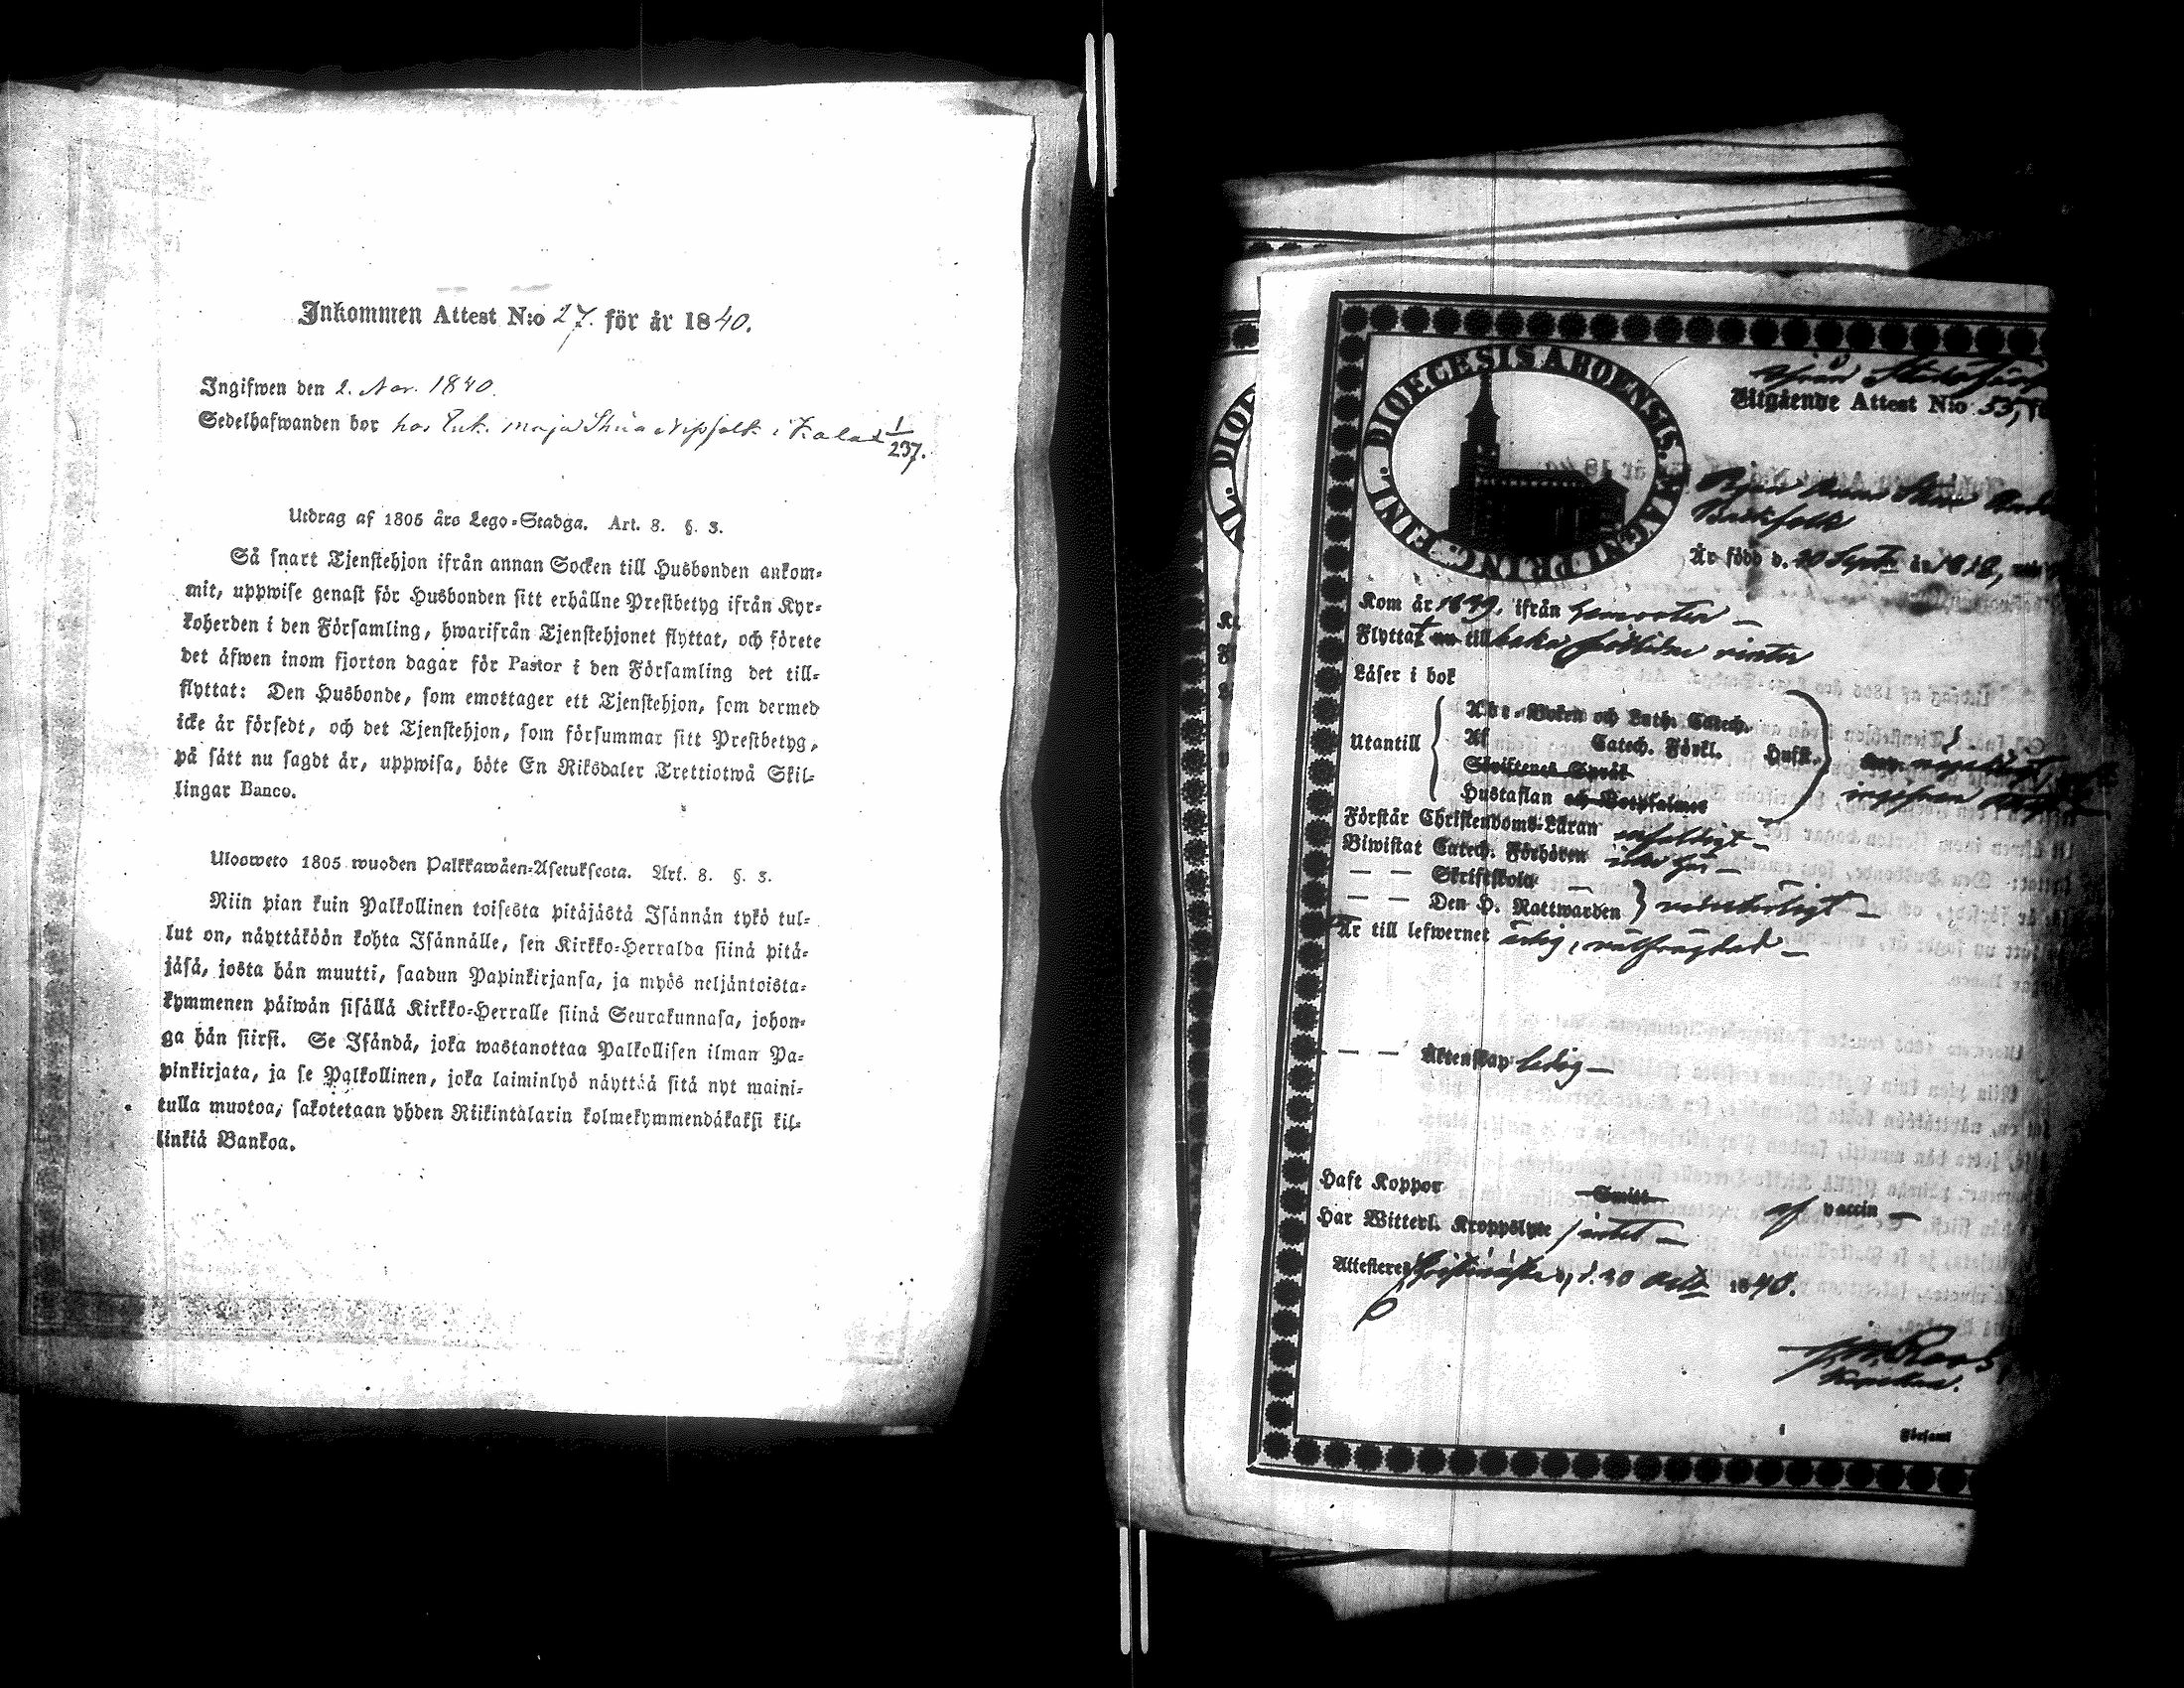 Inkommen Attest N:o 27. för år 1840.
Ingifwen den 2. Nov. 1840.
Sedelhafwanden bor hos Enk. Maja Stina i 1/237.
Utdrag af 1805 års Lego-Stadga. Art. 8. §. 3.
Så snart Tjenstehjon ifrån annan Socken till Husbonden ankom-
mit, uppwise genast för Husbonden sitt erhållne Prestbetyg ifrån Kyr-
koherden i den Församling, hwarifrån Tjenstehjonet flyttat, och förete
det äfwen inom fjorton dagar för Pastor i den Församling det till-
flyttat: Den Husbonde, som emottager ett Tjenstehjon, som dermed
icke är försedt, och det Tjenstehjon, som försummar sitt Prestbetyg,
på sätt nu sagdt är, uppwisa, böte En Riksdaler Trettiotwå Skil-
lingar Banco.
Ulosweto 1805 wuoden Palkkawäen-Asetuksesta. Art. 8. §. 3.
Niin pian kuin Palkollinen toisesta pitäjästä Isännän tykö tul-
lut on, näyttäköön kohta Isännälle, sen Kirkko-Herralda siinä pitä-
jäsä, josta hän muutti, saadun Papinkirjansa, ja myös neljäntoista-
kymmenen päiwän sisällä Kirkko-Herralle siinä Seurakunnasa, johon-
ga hän siirsi. Se Isändä, joka wastanottaa Palkollisen ilman Pa-
pinkirjata, ja se Palkollinen, joka laiminlyö näyttää sitä nyt maini-
tulla muotoa, sakotetaan yhden Riikintalarin kolmekymmendäkaksi kil-
linkiä Bankoa.
DIOECESIS ABOENSIS. MAGNI PRINC. FINL.
Utgående Attest N:o 53,
Pigan Anna Stina
Är född d. 20 Sept. år 1818,
Kom år 1839. ifrån
Flyttat nu tillbaka sistlidne vinter
Läser i bok
Utantill
Abc-Boken och Luth. Catech.
Af Catech. Förkl. Hufst.
Skriftenes Språk
Hustaflan och Botpsalmer
Förstår Christendoms-Läran enfaldigt —
Biwistat Catech. Förhören —
— — Skriftskola —
— — Den H. Nattwarden
Är till lefwernet ärlig,
— — — Äktenskap ledig —
Haft Koppor Smitt. af vaccin —
Har Witterl. Kroppslyte intet —
Attesteres d. 20 1840.
Roos
Kapellan.
i Församl